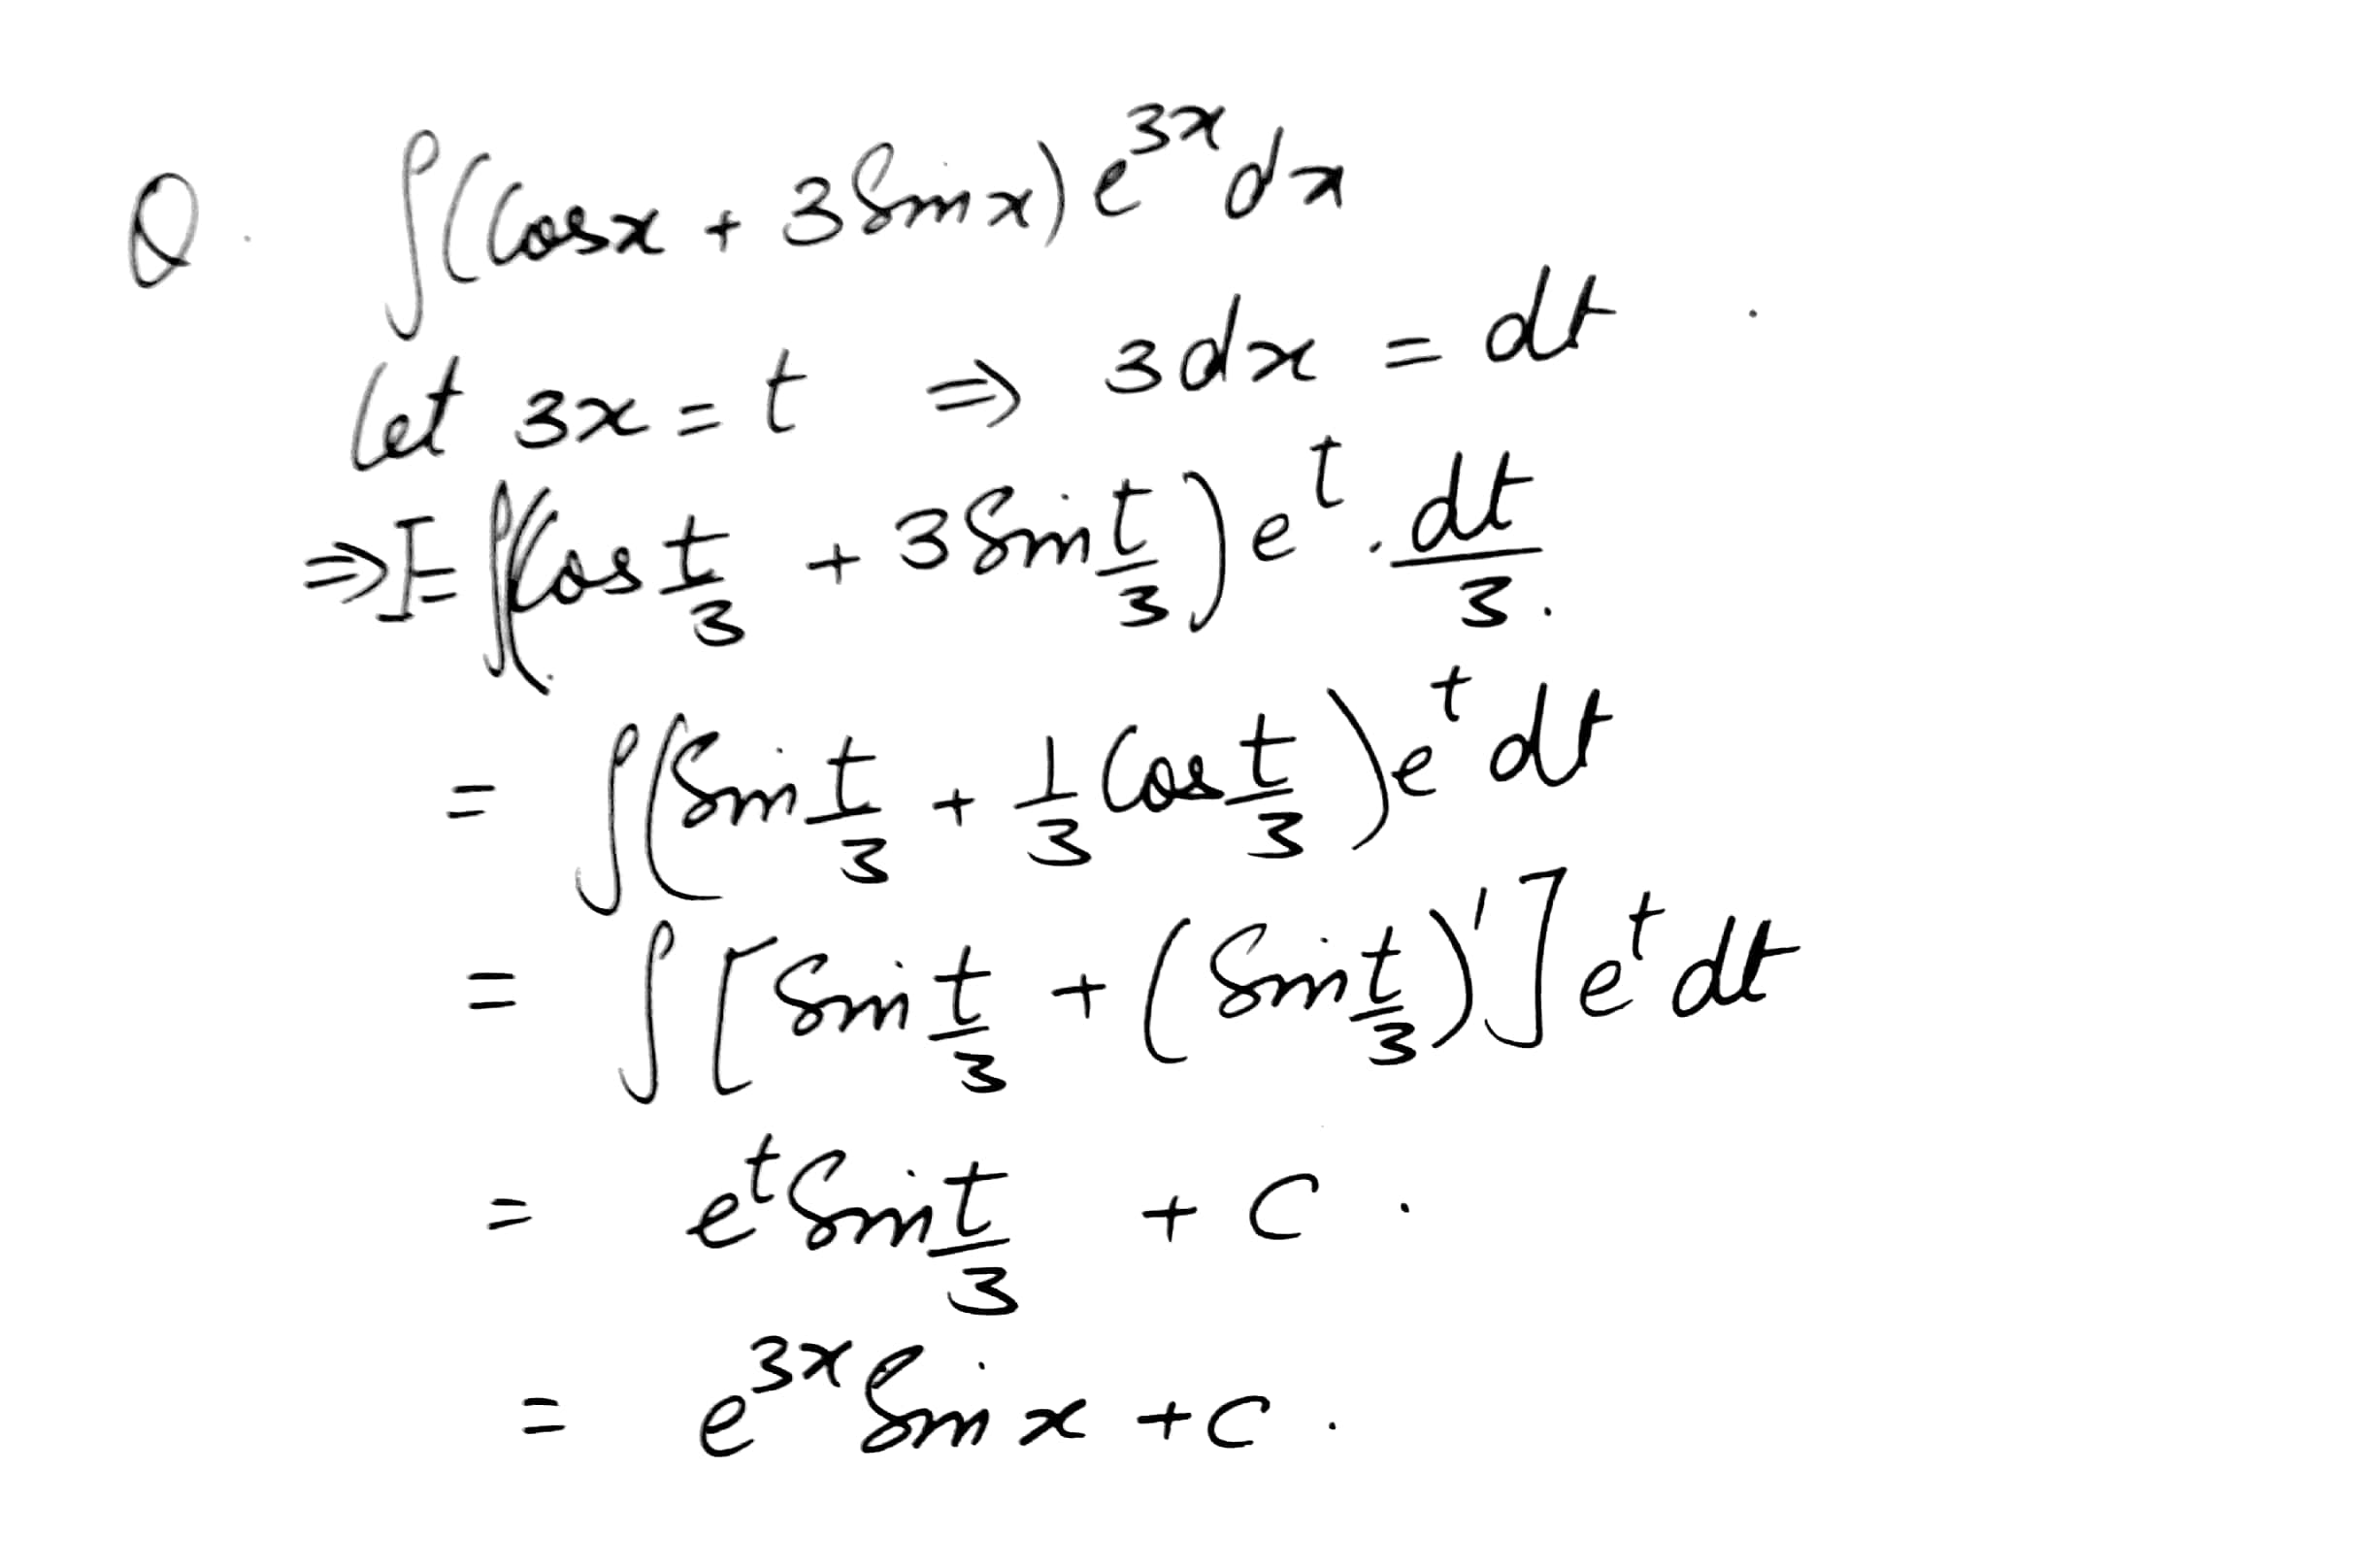 Q. ∫(Cosx + 3 Sinx) e^{3x} dx
let 3x = t ⇒ 3dx = dt .
⇒ I = ∫(Cos t/3 + 3 Sin t/3) e^t . dt/3 .
= ∫(Sin t/3 + 1/3 Cos t/3) e^t dt
= ∫[Sin t/3 + (Sin t/3)'] e^t dt
= e^t Sin t/3 + C .
= e^{3x} Sin x + C .